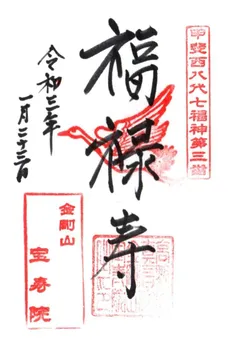 甲斐西八代七福神第三番
福禄寿
令和三年
一月二十三日
金剛山
宝寿院